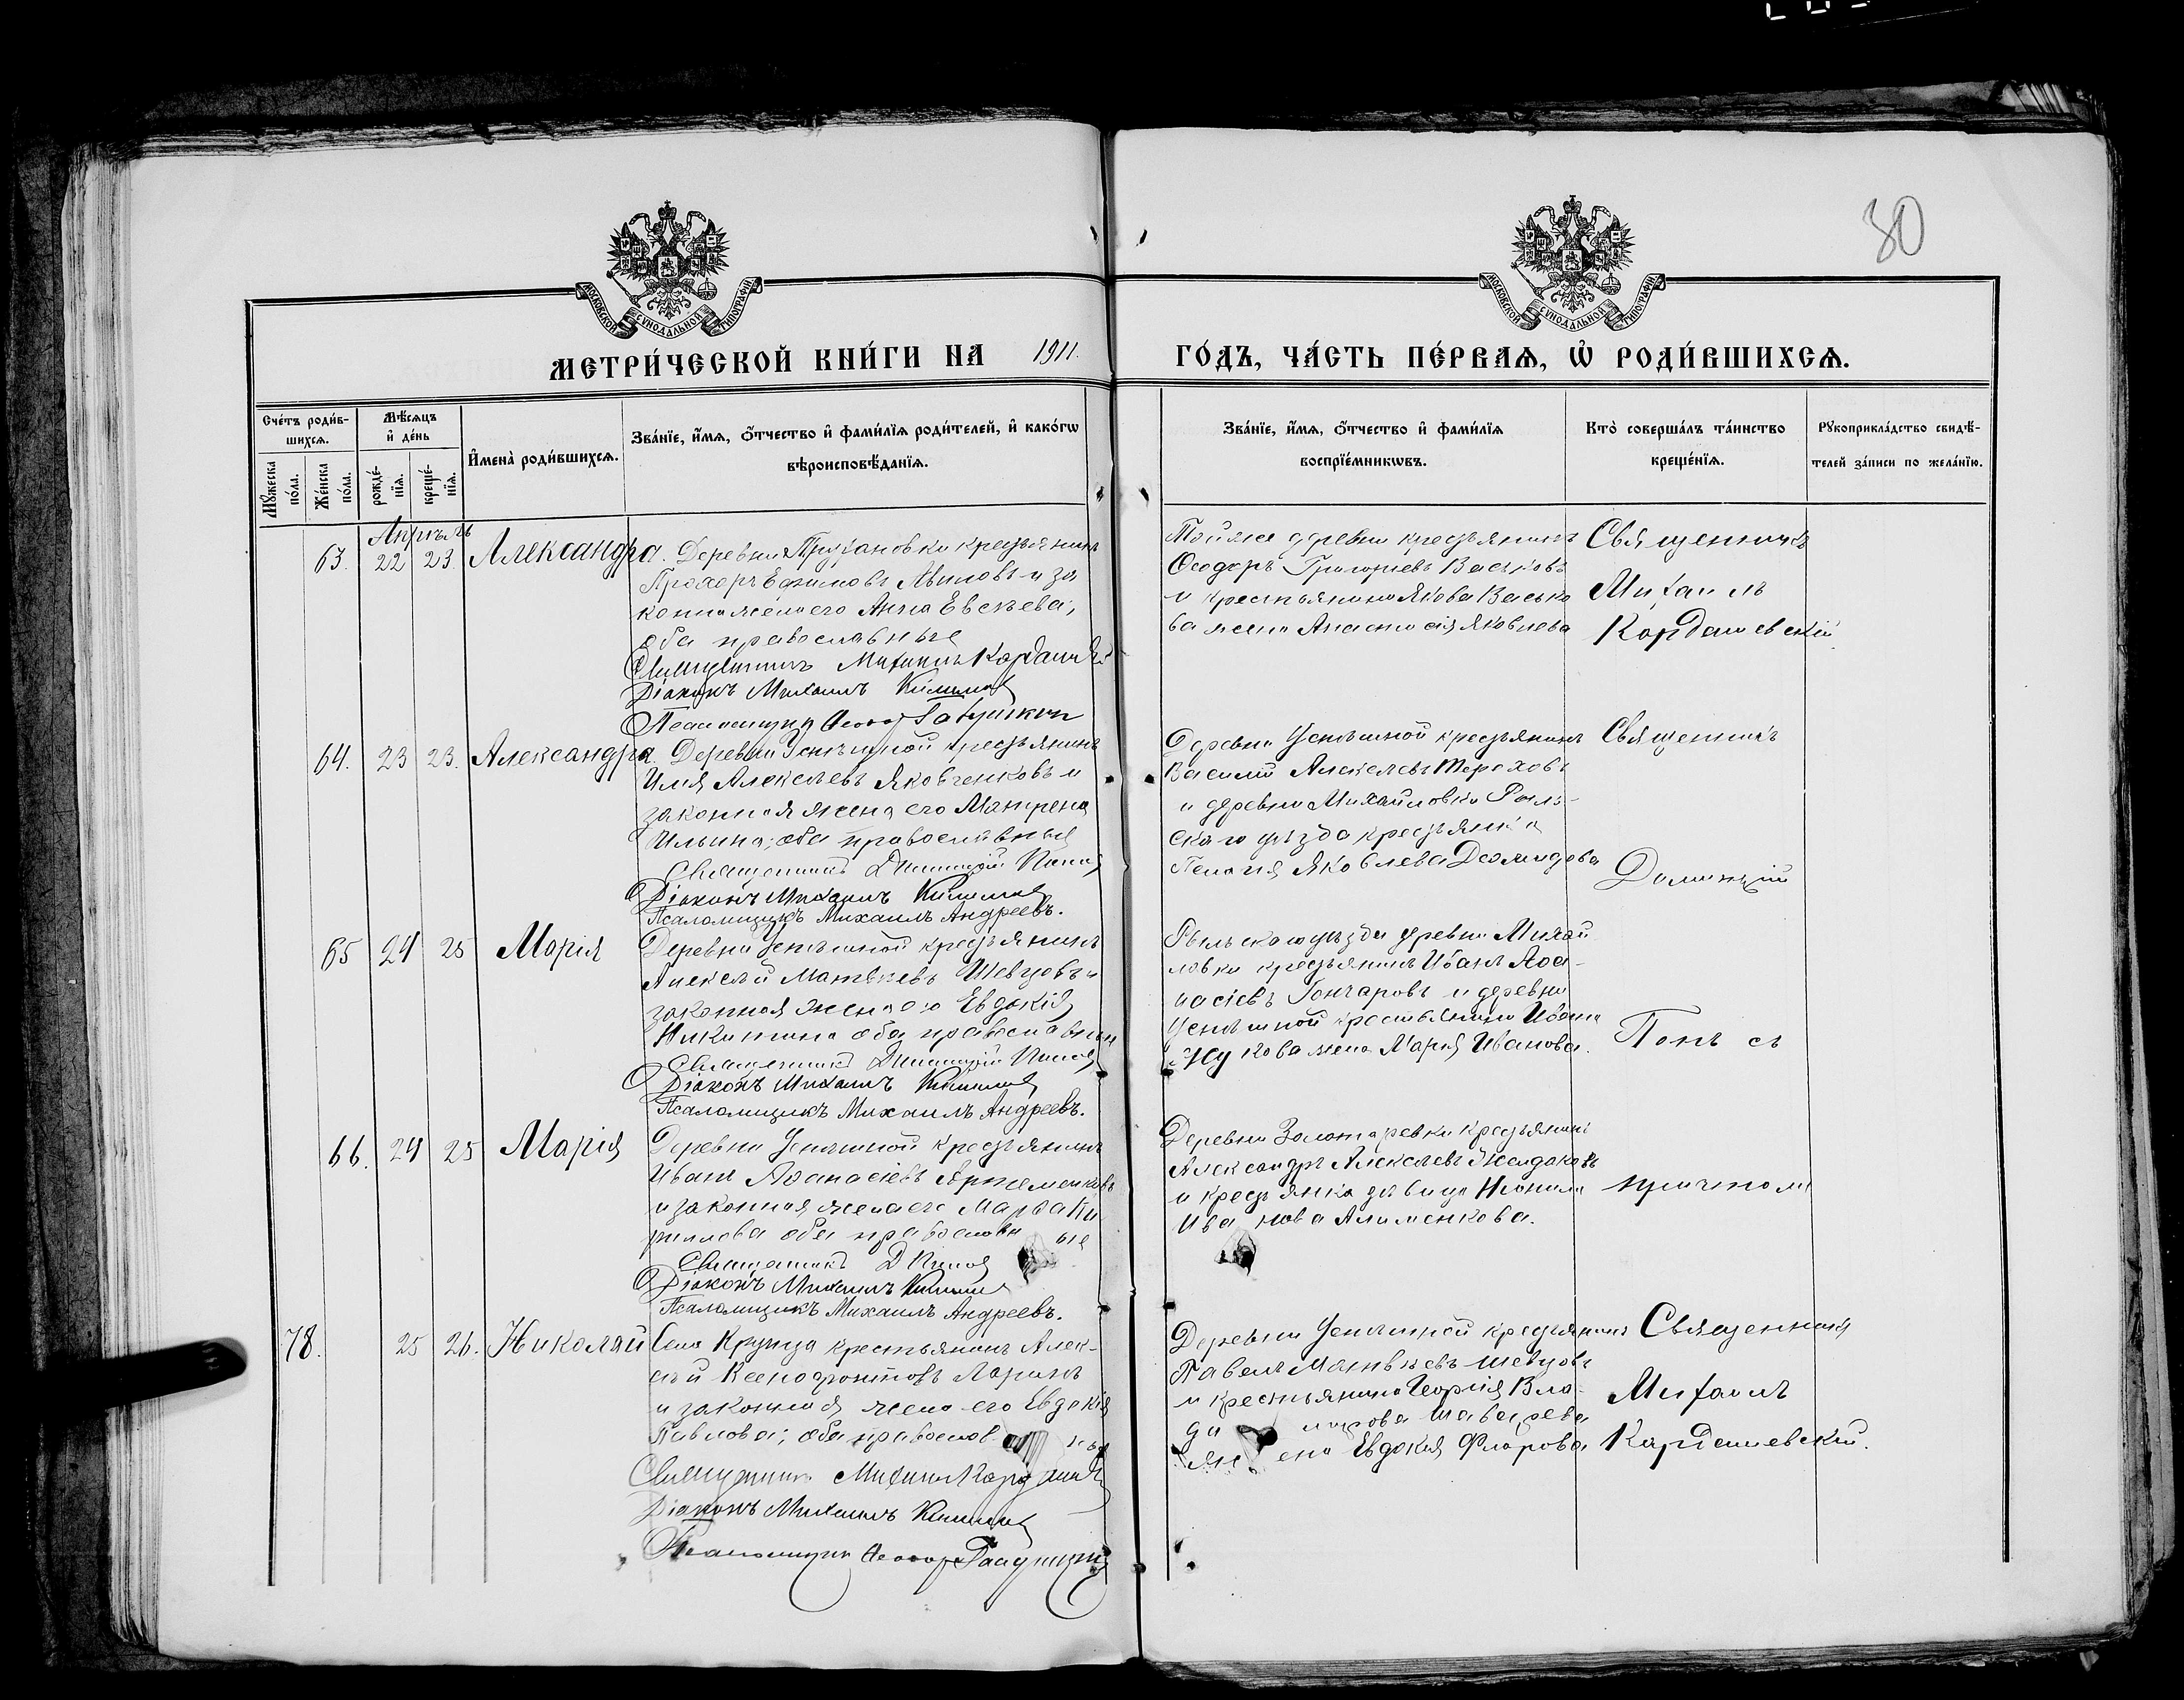 80
МОСКОВСКОЙ СѴНОДАЛЬНОЙ ТИПОГРАФІИ
МОСКОВСКОЙ СѴНОДАЛЬНОЙ ТИПОГРАФІИ
МЕТРИ́ЧЕСКОЙ КНИ́ГИ НА 1911. ГО́ДЪ, ЧА́СТЬ ПЕ́РВАѦ, Ѡ҆ РОДИ́ВШИХСѦ.
Сче́тъ роди́в-
шихсѧ.
Мꙋ́жеска
по́ла.
Же́нска
по́ла.
Мѣ́сѧцъ
и҆ де́нь
рожде́-
нїѧ.
креще́-
нїѧ.
И҆мена̀ роди́вшихсѧ.
Зва́нїе, и҆́мѧ, ѻ҆́тчество и҆ фами́лїѧ роди́телей, и҆ како́гѡ
вѣроисповѣ́данїѧ.
Зва́нїе, и҆́мѧ, ѻ҆́тчество и҆ фами́лїѧ
воспрїе́мникѡвъ.
Кто̀ соверша́лъ та́инство
креще́нїѧ.
Рꙋкоприкла́дство свидѣ́-
телей за́писи по жела́нїю.
Апрѣль
63. 22 23. Александра. Деревни крестьянинъ
Прохоръ Ефимовъ и за
конная жена его Анна Евсѣева;
оба православные
Священникъ Михаилъ
Діаконъ Михаилъ
Псаломщикъ
Тойже деревни крестьянинъ
Ѳеодоръ Григорьевъ Васьковъ
и крестьянина Якова Васько
ва жена Анастасія Яковлева
Священникъ
Михаилъ
Кордашевскій.
64. 23 23. Александра. Деревни Успѣшной крестьянинъ
Илія Алексѣевъ Яковченковъ и
законная жена его Матрена
Ильина; оба православныя
Священникъ Димитрій Поповъ
Діаконъ Михаилъ
Псаломщикъ Михаилъ Андреевъ.
Деревни Успѣшной крестьянинъ
Василій Алексѣевъ Тереховъ
и деревни Михайловки Рыль-
скаго уѣзда крестьянка
Пелагія Яковлева Демидова
Священникъ
Димитрій
65 24 25 Марія Деревни Успѣшной крестьянинъ
Алексѣй Матвѣевъ Шевцовъ и
законная жена его Евдокія
Никитина оба православныи
Священникъ Димитрій Поповъ
Діаконъ Михаилъ
Псаломщикъ Михаилъ Андреевъ.
Рыльскаго уѣзда деревни Михай
ловки крестьянинъ Иванъ Аѳа-
насіевъ Гончаровъ и деревни
Успѣшной крестьянина Ивана
Жукова жена Марія Иванова.
Попъ съ
66. 24 25 Марія Деревни Успѣшной крестьянинъ
Иванъ Аѳанасіевъ
и законная жена его Марѳа Ки
риллова оба православные
Священникъ Д Поповъ
Діаконъ Михаилъ
Псаломщикъ Михаилъ Андреевъ.
Деревни Золотаревки крестьянинъ
Александръ Алексѣевъ Желдаковъ
и крестьянка дѣвица Неонила
Иванова Алименкова.
причтомъ
78. 25 26. Николай Села Крупца крестьянинъ Алек-
сѣй Ксенофонтовъ Ларинъ
и законная жена его Евдокія
Павлова; оба православныя
Священникъ Михаилъ
Діаконъ Михаилъ
Псаломщикъ
Деревни Успѣшной крестьянинъ
Павелъ Матвѣевъ Шевцовъ
и крестьянина Георгія Вла-
димірова
жена Евдокія Флорова
Священникъ
Михаилъ
Кардашевскій.